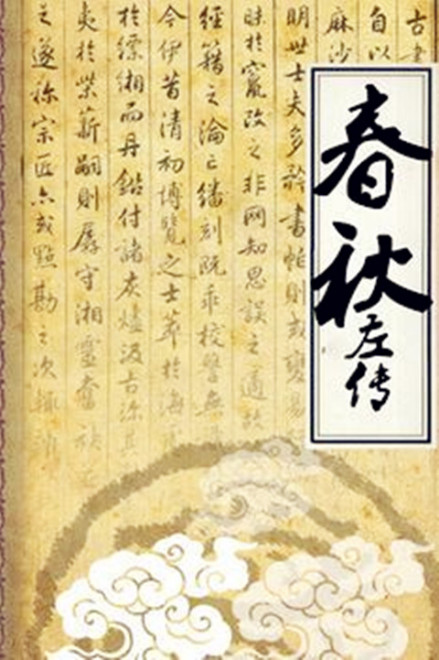 春秋
左传
古
自以
麻沙
明世士夫多
昧於竄改之非网知思誤之適
經籍之淪亡繙刻既乖校讐無
今伊昔清初博覽之士萃於海
於縹緗而丹鉛付諸灰燼汲古
夷於柴薪嗣則孱守湘靈奮
之遂称宗匠亦或點勘之次輒